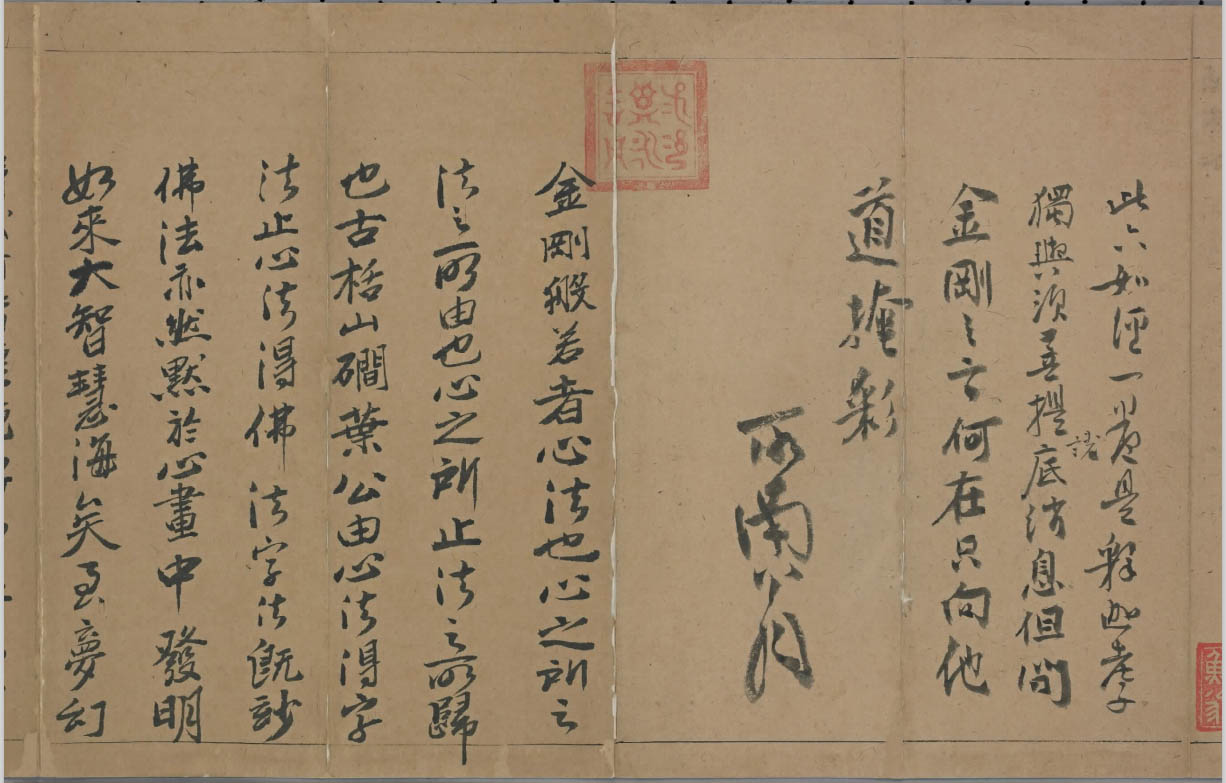 此六如經一卷是釋迦老子
獨與須菩提底諸消息但問
金剛之言何在只向他
道掩彩
金剛般若者心法也心之所之
法之所由也心之所止法之所歸
也古栝山磵葉公由心法得字
法止心法得佛法字法既妙
佛法亦然默於心畫中發明
如來大智慧海矣至夢幻